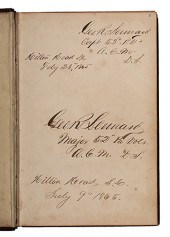 Geo R Lennard
Capt 52^d P.V.
A.C.M.
Hilton Head
July 1865
Geo R Lennard
Major 52^d Pa Vols
A.C.M. D.S.
Hilton Head, S.C.
July 9th 1865.